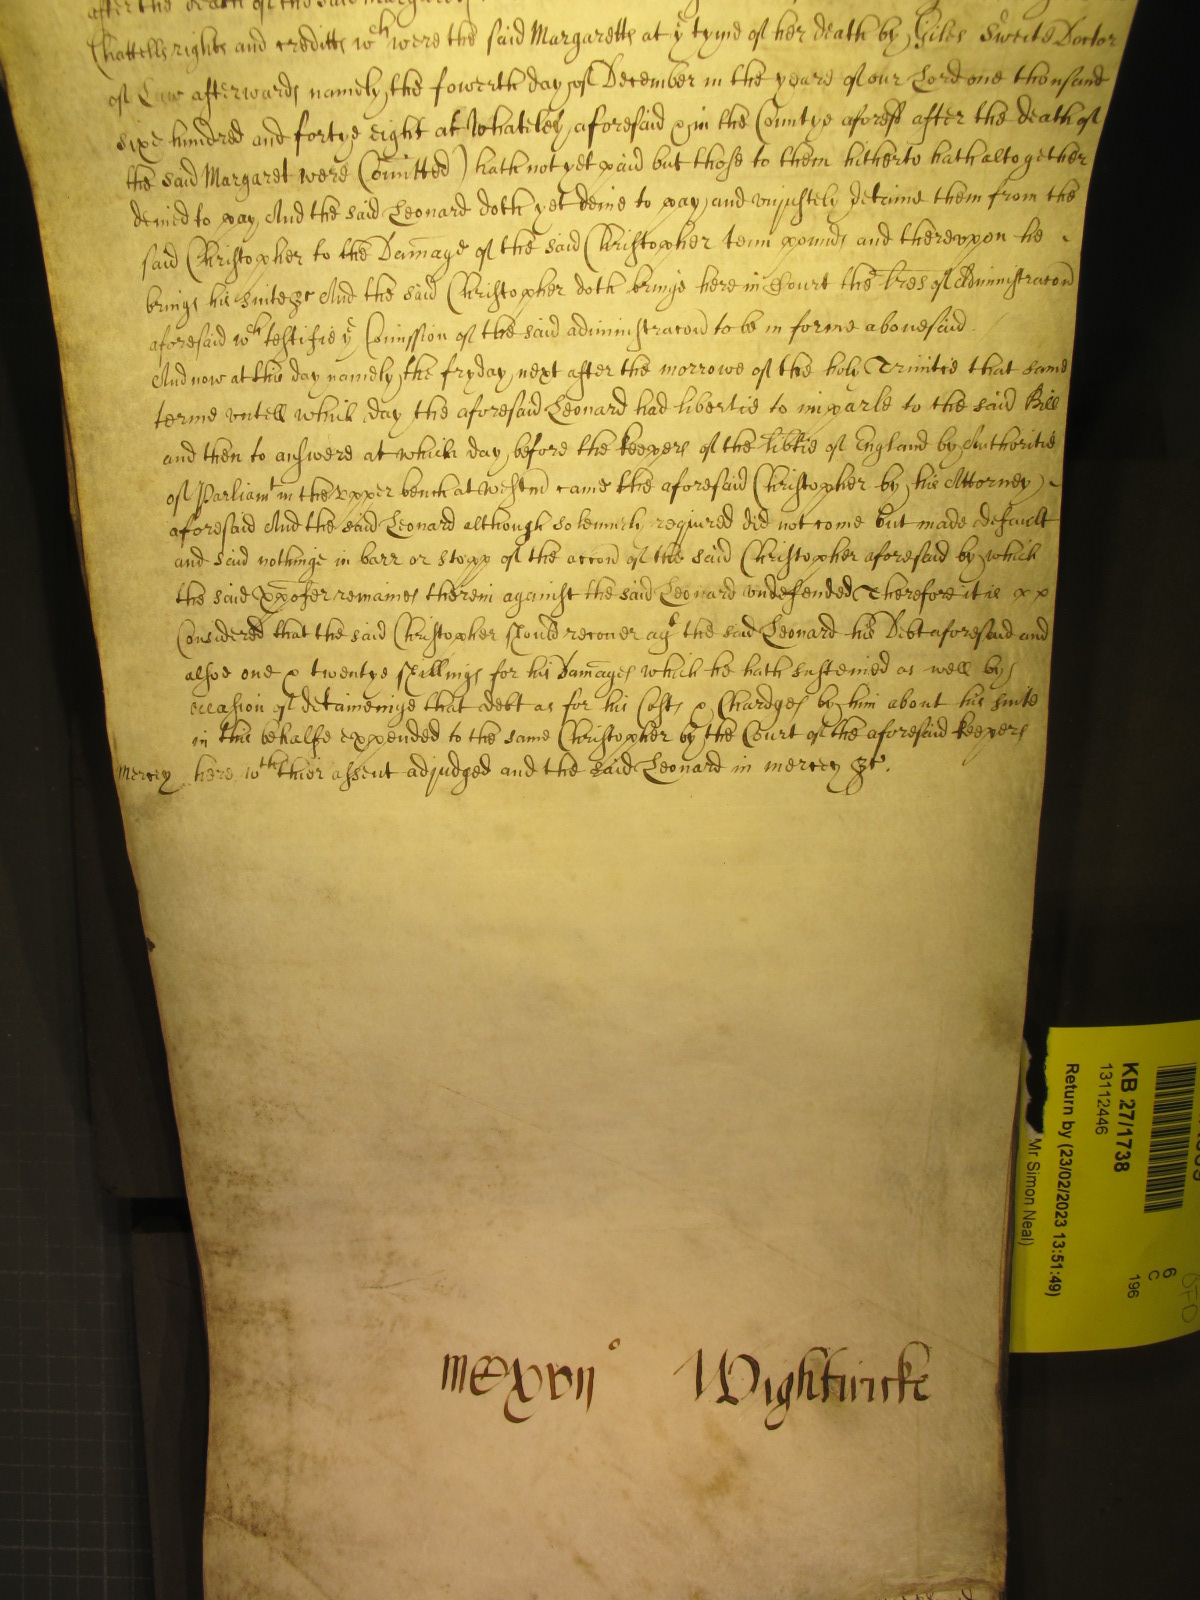 after the death of the said Margarett
Chattells rights and creditts wch were the said Margaretts at ye tyme of her death by Giles Sweite Doctor
of Law afterwards namely the fowerth day of December in the yeare of our Lord one thousand
sixe hundred and fortye eight at Whateley aforesaid in the Countye aforesd after the death of
the said Margaret were Comitted) hath not yet paid but those to them hitherto hath altogether
denied to pay And the said Leonard doth yet denie to pay and uniustely detaine them from the
said Christopher to the Damage of the said Christopher tenn pounds and thereuppon he
brings his suite &c And the said Christopher doth bringe here in Court the lres of Administracon
aforesaid wch testifie ye Comission of the said administracon to be in forme abovesaid
And now at this day namely the fryday next after the morrowe of the holy Trinitie that same
terme untell which day the aforesaid Leonard had libertie to imparle to the said Bill
and then to answere at which day before the keepers of the libtie of England by Authoritie
of Parliamt in the upper bench at Westmr came the aforesaid Christopher by his Attorney
aforesaid And the said Leonard although solemnly required did not come but made default
and said nothinge in barr or stopp of the accon of the said Christopher aforesaid by which
the said Xpofer remaines therein against the said Leonard undefended Therefore it is
Considered that the said Christopher should recover agt the said Leonard his Debt aforesaid and
alsoe one & twentye shillings for his Damages which he hath susteined as well by
occasion of detaineinge that debt as for his Costs & Chardges by him about his suite
in this behalfe expended to the same Christopher by the Court of the aforesaid keepers
Mercey here wth thier assent adjudged and the said Leonard in mercey &c.
KB 27/1738
13112446
Return by (23/02/2023 13:51:49)
Mr Simon Neal)
6
C
196
Wightwicke